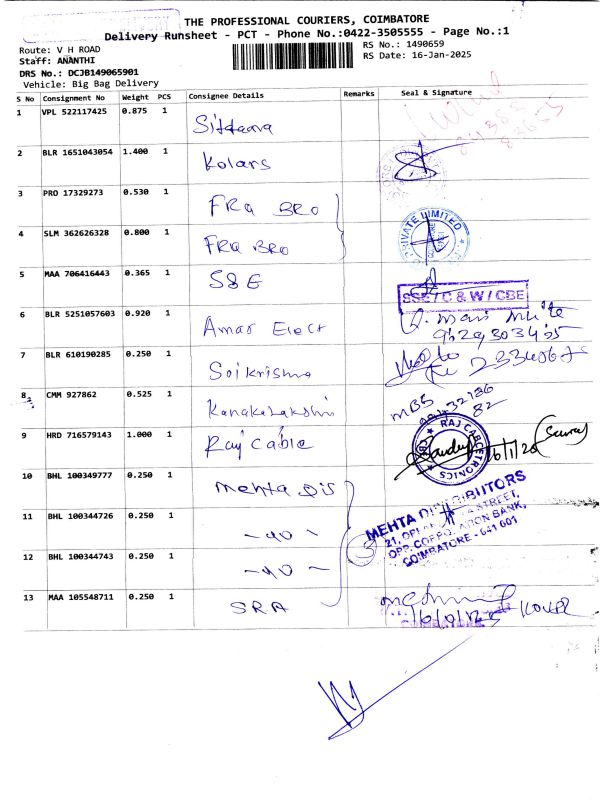 THE PROFESSIONAL COURIERS, COIMBATORE
Delivery Runsheet - PCT - Phone No.:0422-3505555 - Page No.:1
Route: V H ROAD
RS No.: 1490659
Staff: ANANTHI
RS Date: 16-Jan-2025
DRS No.: DCJB149065901
Vehicle: Big Bag Delivery
S No Consignment No Weight PCS Consignee Details Remarks Seal & Signature
1 VPL 522117425 0.875 1 Sittaara
2 BLR 1651043054 1.400 1 Kolars
3 PRO 17329273 0.530 1 FRQ BRO
4 SLM 362626328 0.800 1 FRQ BRO
PRIVATE LIMITED
5 MAA 706416443 0.365 1 S&E
SSE / C & W / CBE
6 BLR 5251057603 0.920 1 Amar Elect
7 BLR 610190285 0.250 1 Saikrishna
8 CMM 927862 0.525 1 Kanakalakshmi
9 HRD 716579143 1.000 1 Raj Cable
RAJ CABLETRONICS
10 BHL 100349777 0.250 1 Mehta Dis
MEHTA DISTRIBUTORS
STREET,
OPP. CORPORATION BANK,
COIMBATORE - 641 001
11 BHL 100344726 0.250 1 - do -
12 BHL 100344743 0.250 1 - do -
13 MAA 105548711 0.250 1 SRA